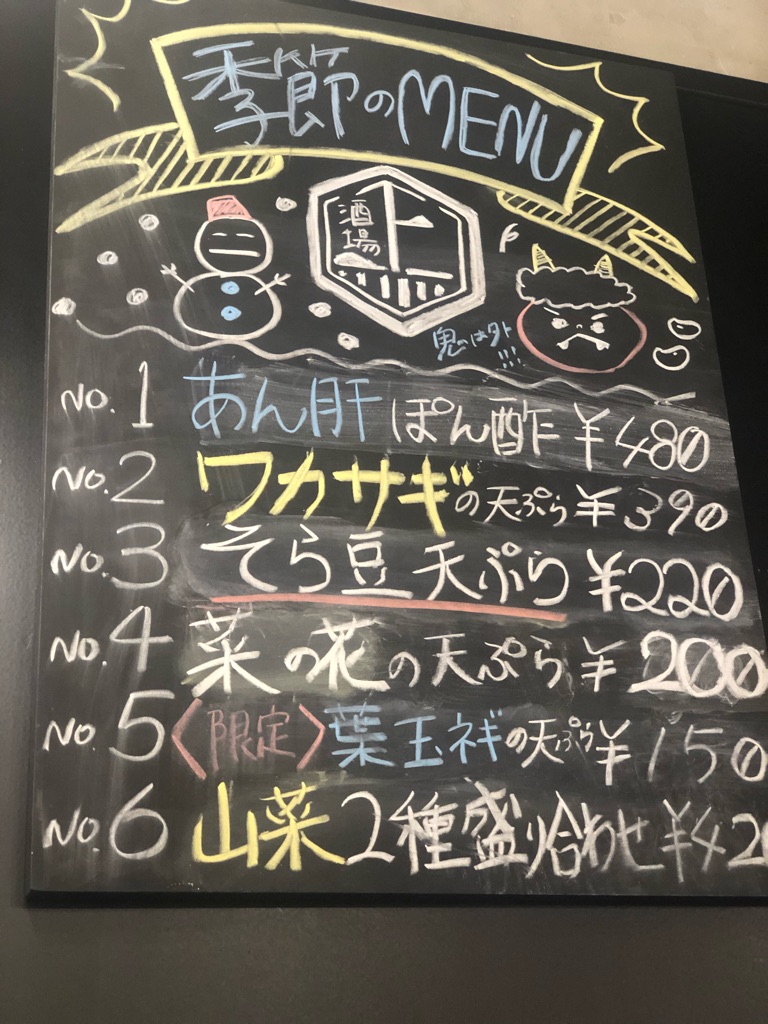 季節のMENU
酒場
上
鬼は外!!!
NO.1 あん肝 ぽん酢 ¥480
NO.2 ワカサギの天ぷら ¥390
NO.3 そら豆 天ぷら ¥220
NO.4 菜の花の天ぷら ¥200
NO.5 〈限定〉葉玉ネギの天ぷら ¥150
NO.6 山菜2種盛り合わせ ¥42